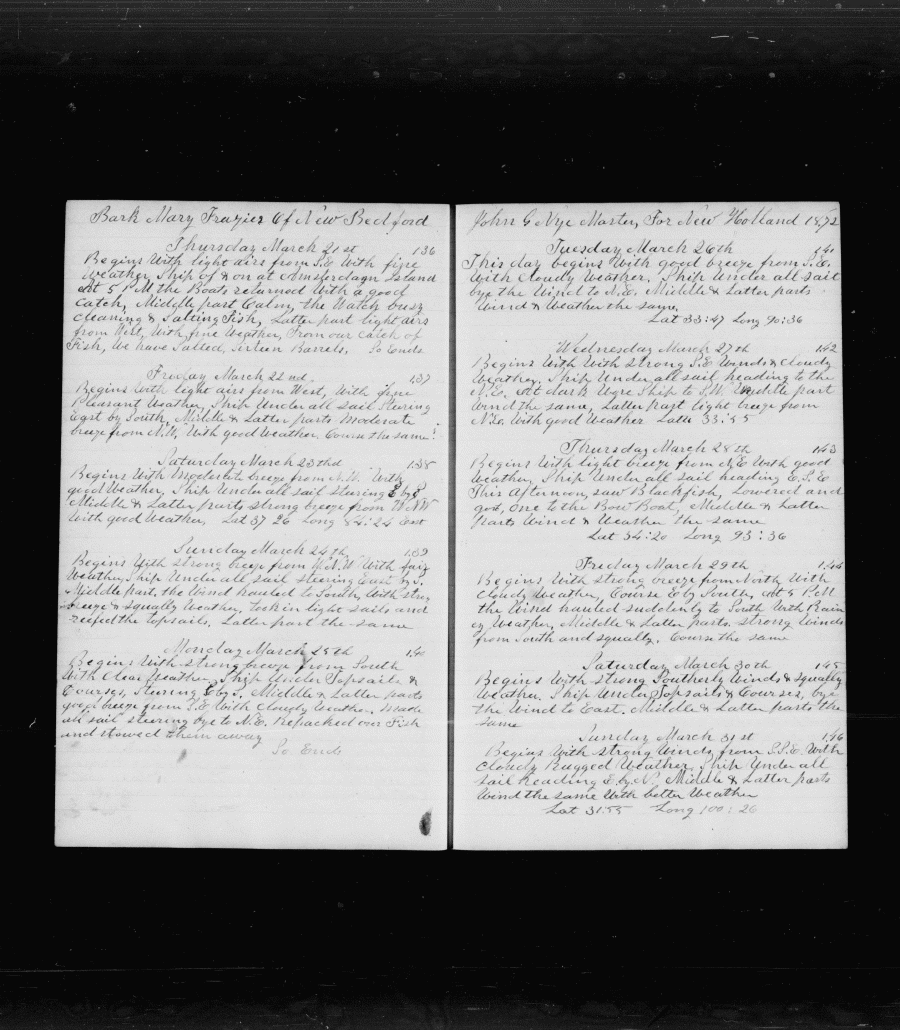 Bark Mary Frazier Of New Bedford
Thursday March 21st 136
Begins With light airs from S.E. With fine
Weather, Ship of & on at Amsterdagn Island
At 5 P.M the Boats returned With a good
Catch, Middle part Calm, the Watch busy
cleaning & Salting Fish, Latter part light airs
from West, With fine Weather, From our Catch of
Fish, We have Salted, Sixteen Barrels. So Ends
Friday March 22nd. 137
Begins With light airs from West, With fine
Pleasant Weather, Ship Under all Sail Steering
East by South, Middle & Latter parts Moderate
breeze from N.W. With good Weather. Course the same
Saturday March 23thd 138
Begins With Moderate breeze from N.W. With
good Weather, Ship Under all sail steering E by S
Middle & Latter parts strong breeze from W.N.W
With good Weather, Lat 37 26 Long 84:24 East
Sunday March 24th 139
Begins With strong breeze from W.N.W With fair
Weather, Ship Under all sail steering East by S.
Middle part, the Wind hauled to South, With strong
breeze & squally Weather, took in light sails and
reefed the topsails, Latter part the same
Monday March 25th 140
Begins With strong breeze from South
With Clear Weather, Ship Under Topsails &
Courses, Steering E by S. Middle & Latter parts
good breeze from S.E. With Cloudy Weather. Made
all sail steering bye to N.E. Repacked over Fish
and stowed them away
So Ends
John G Nye Master, For New Holland 1872
Tuesday March 26th 141
This day begins With good breeze from S.E.
With Cloudy Weather, Ship Under all sail
bye the Wind to N.E. Middle & Latter parts
Wind & Weather the same.
Lat 33:47 Long 90:36
Wednesday March 27th 142
Begins With With strong S.E Winds & Cloudy
Weather, Ship Under all sail heading to the
N.E. At dark Wore Ship to S.W. Middle part
Wind the same, Latter part light breeze from
N.E. With good Weather Latt 33:55
Thursday March 28th 143
Begins With light breeze from N.E With good
Weather, Ship Under all sail heading E.S.E
This Afternoon, saw Blackfish, Lowered and
got, one to the Bow Boat, Middle & Latter
parts Wind & Weather the same
Lat 34:20 Long 93:36
Friday March 29th 144
Begins With strong breeze from North With
Cloudy Weather, Course E by South, At 5 P.M
the Wind hauled suddenly to South With Rain
ey Weather, Middle & Latter parts strong Winds
from South and squally. Course the same
Saturday March 30th 145
Begins With strong Southerly Winds & squally
Weather. Ship Under Topsails & Courses, bye
the Wind to East. Middle & Latter parts the
same
Sunday March 31st 146
Begins With strong Winds from S.S.E. With
Cloudy Rugged Weather, Ship Under all
sail heading E. by N. Middle & Latter parts
Wind the same With better Weather
Lat 31:55 Long 100:26